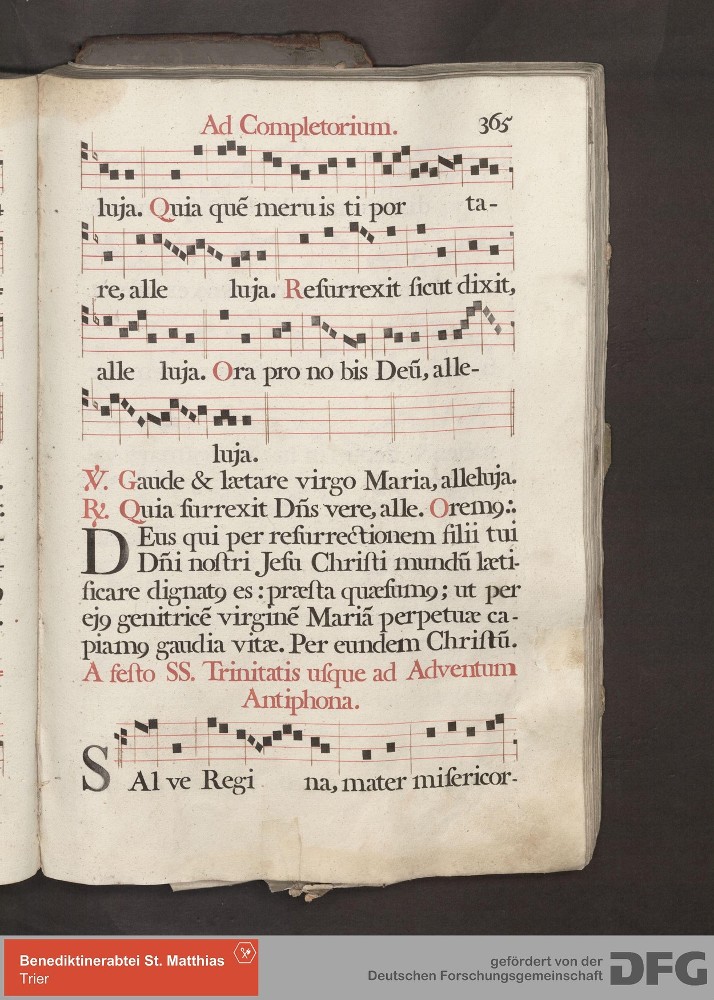 Ad Completorium. 365
luja. Quia quē meruis ti por ta-
re, alle luja. Reſurrexit ſicut dixit,
alle luja. Ora pro no bis Deū, alle-
luja.
℣. Gaude & lætare virgo Maria, alleluja.
℟. Quia ſurrexit Dñs vere, alle. Oremꝯ:.
DEus qui per reſurrectionem filii tui
Dñi noſtri Jeſu Chriſti mundū læti-
ficare dignatꝯ es: præſta quæſumꝯ; ut per
ejꝯ genitricē virginē Mariā perpetuæ ca-
piamꝯ gaudia vitæ. Per eundem Chriſtū.
A feſto SS. Trinitatis uſque ad Adventum
Antiphona.
SAl ve Regi na, mater miſericor-
Benediktinerabtei St. Matthias
Trier
gefördert von der
Deutschen Forschungsgemeinschaft
DFG